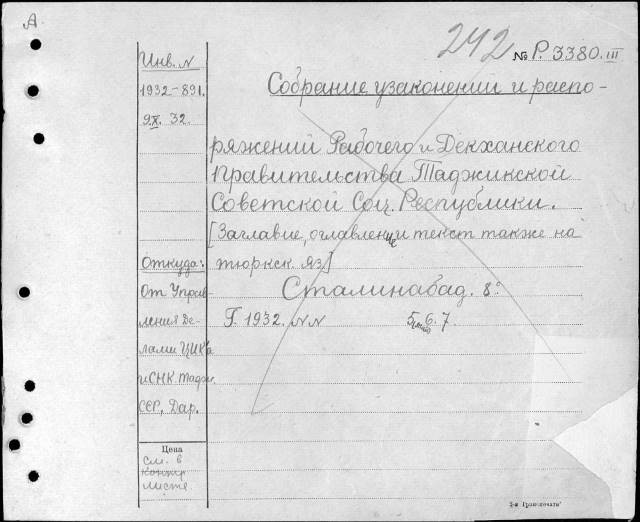 А
242 № Р. 3380. III
Инв. №
1932-891.
9.X. 32.
Собрание узаконений и распо-
ряжений Рабочего и Декханского
Правительства Таджикской
Советской Соц. Республики.
[Заглавие, оглавление и текст также на
тюркск. яз]
Сталинабад. 8°
Г. 1932. NN 5, 6. 7.
Откуда:
От Управ-
ления Де-
лами ЦИК'а
и СНК. Тадж.
ССР. Дар.
Цена
см. в
контр
листе.